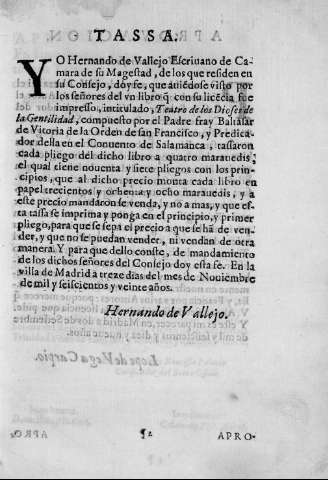 TASSA.
YO Hernando de Vallejo Escriuano de Ca-
mara de su Magestad, de los que residen en
su Consejo, doy fe, que auiēdose visto por
los señores del vn libro q̄ con su licēcia fue
impresso, intitulado, Teatro de los Dioses de
la Gentilidad, compuesto por el Padre fray Baltasar
de Vitoria de la Orden de san Francisco, y Predica-
dor della en el Conuento de Salamanca, tassaron
cada pliego del dicho libro a quatro marauedis,
el qual tiene nouenta y siete pliegos con los prin-
cipios, que al dicho precio monta cada libro en
papel trecientos y ochenta y ocho marauedis, y a
este precio mandaron se venda, y no a mas, y que es-
ta tassa se imprima y ponga en el principio, y primer
pliego, para que se sepa el precio a que se hà de ven-
der, y que no se puedan vender, ni vendan de otra
manera. Y para que dello conste, de mandamiento
de los dichos señores del Consejo doy esta fe. En la
villa de Madrid a treze dias del mes de Nouiembre
de mil y seiscientos y veinte años.
Hernando de Vallejo.
¶2
APRO-